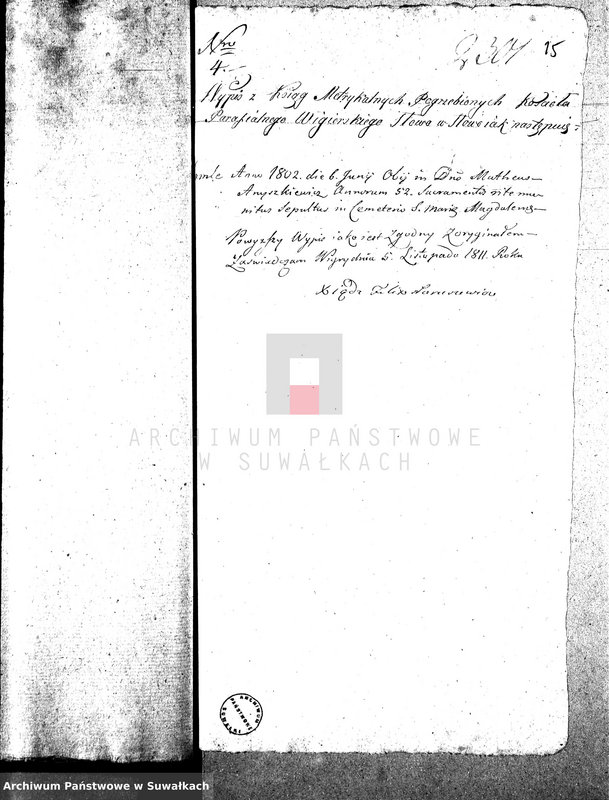 Nro
4.
15
Wypis z Ksiąg Metrykalnych Pogrzebionych Kościoła
Parafialnego Wigierskiego Słowo w Słowo iak następuie
Anno 1802. die 6. Junij Obij in Dno Matheus
Anyszkiewicz Annorum 52. Sacramentis rite mu
nitus Sepultus in Cemeterio S. Mariæ Magdalenæ
Powyższy Wypis iako iest Zgodny Zoryginałem
Zaświadczam Wigry dnia 5. Listopada 1811. Roku
Xiądz Felix Naruszewicz
ARCHIWUM PAŃSTWOWE
W SUWAŁKACH
Archiwum Państwowe w Suwałkach